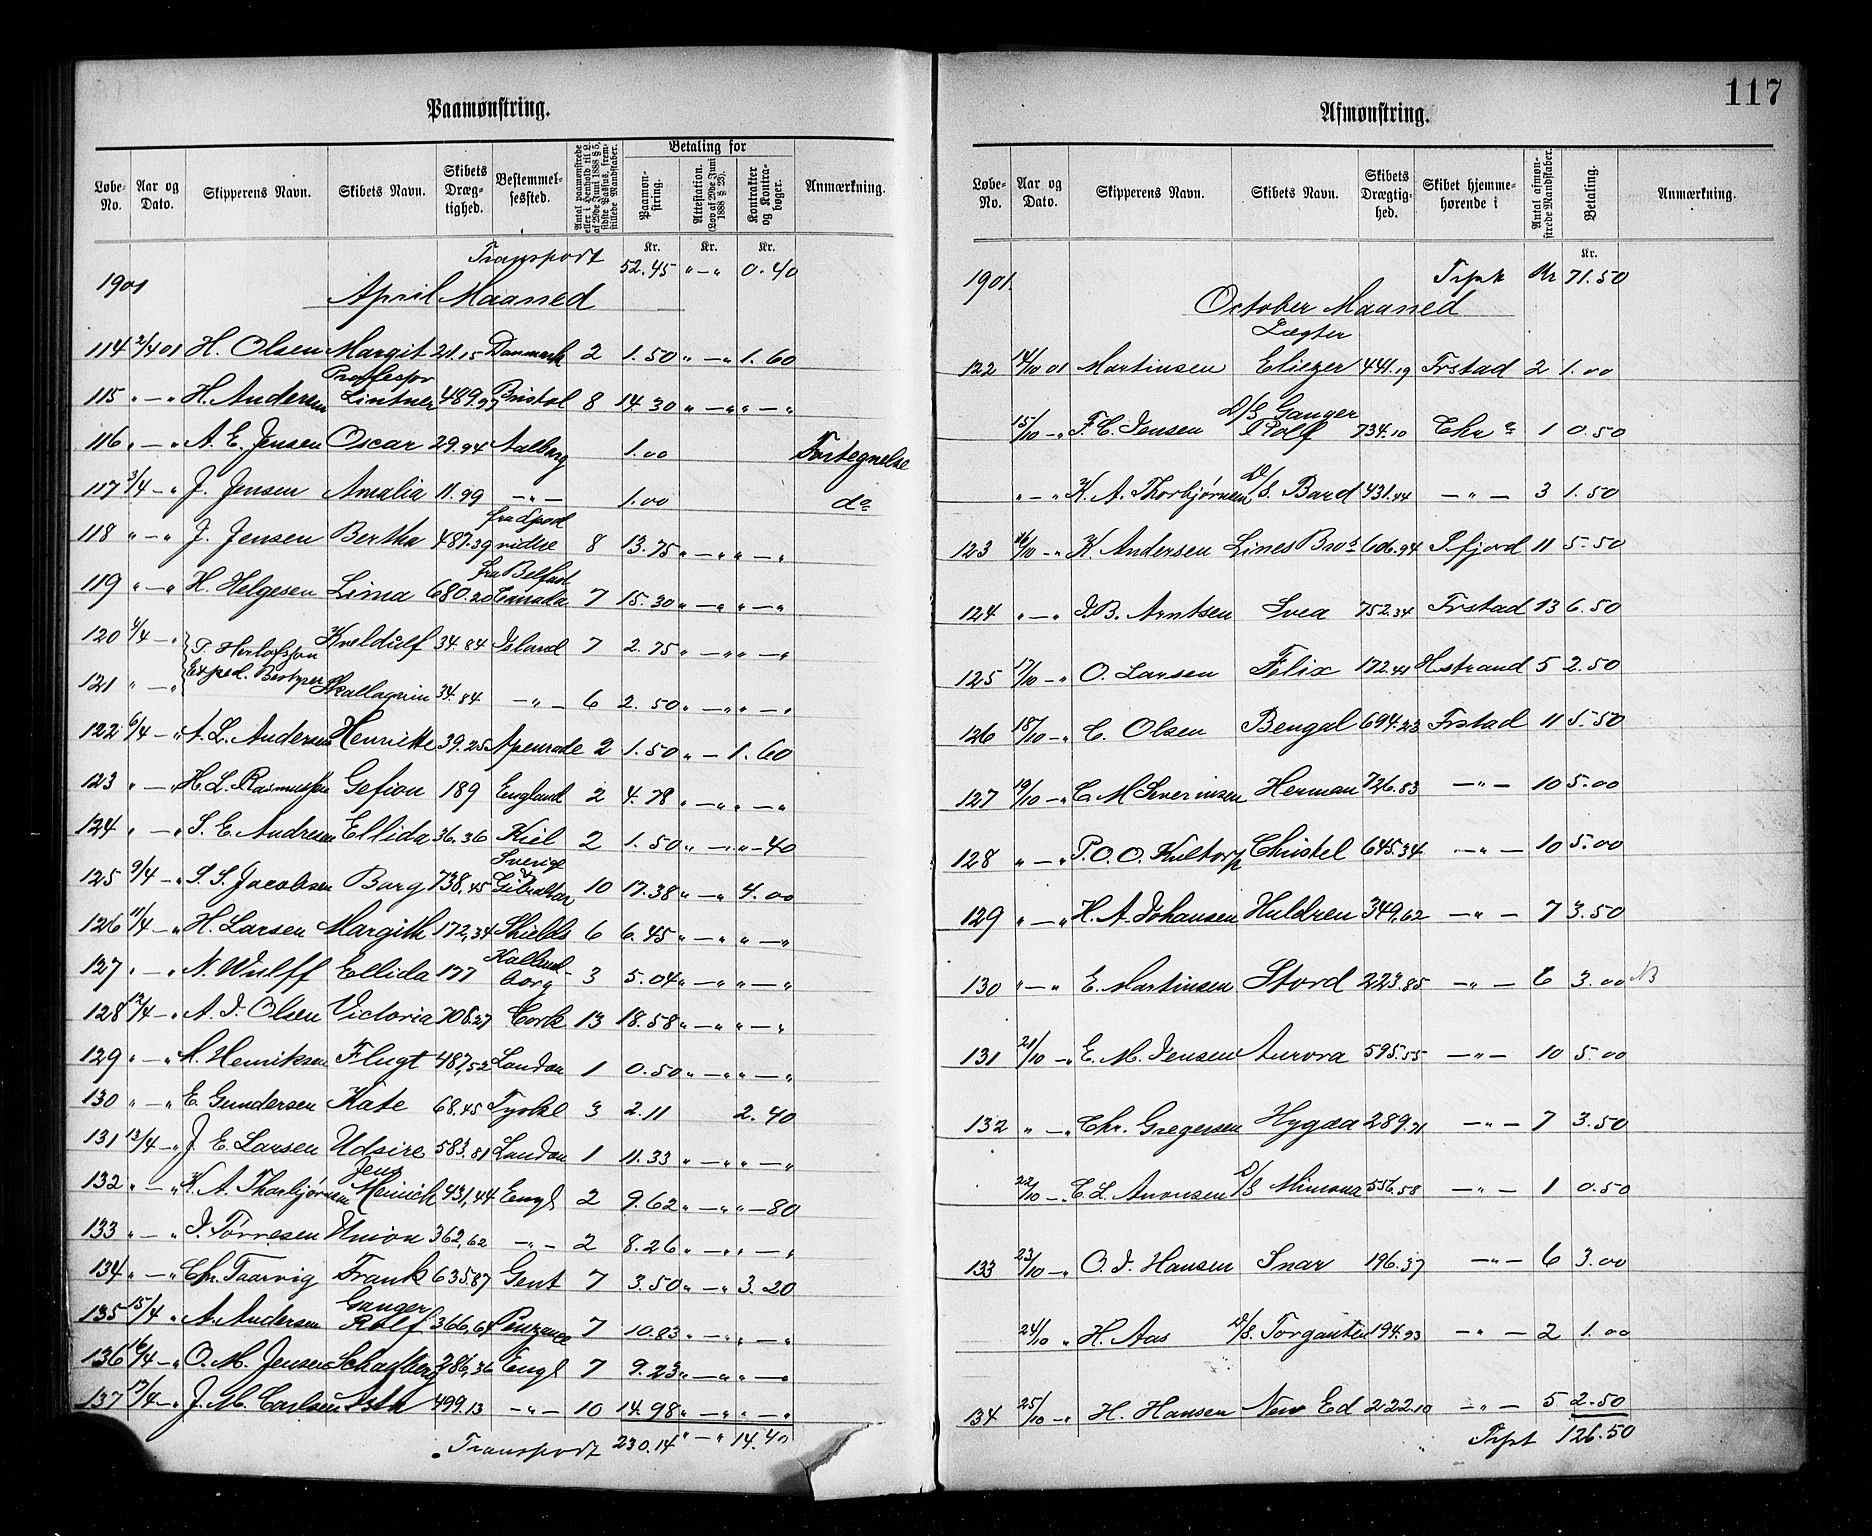 117
Paamønstring.
Løbe-No. Aar og Dato. Skipperens Navn. Skibets Navn. Skibets Dræg-tighed. Bestemmel-sessted. Antal paamønstrede eller i Henhold til L. af 29de Juni 1888 § 5, sidste Passus, frem-stillede Mandskaber. Betaling for Paamøn-string. Attestation. (Lov af 29de Juni 1888 § 23). Kontrakter og Kontra-bøger. Anmærkning.
Kr. Kr. Kr.
Transport 52.45 " — " 0.40
1901
April Maaned
114 2/4 01 H. Olsen Margit 21.15 Danmark 2 1.50 " — " 1.60
115 " — " H. Andersen Proffessor Lintner 489.97 Bristol 8 14.30 " — " " — "
116 " — " A. E. Jensen Oscar 29.94 Aalborg 1.00 Fortegnelse
117 3/4 — " J. Jensen Amalia 11.99 — " — 1.00 do
118 " — " J. Jensen Bertha 487.39 8 13.75 " — " " — "
119 " — " H. Helgesen Lima 680.20 fra Belfast Canada 7 15.30 " — " " — "
120 4/4 — " P. Herlofsson Kveldulf 34.84 Island 7 2.75 " — " " — "
Exped. Bestyrer
121 " — " Skallagrim 34.84 — " — 6 2.50 " — " " — "
122 6/4 — " A. L. Andersen Henriette 39.25 Apenrade 2 1.50 " — 1.60
123 " — " H. L. Rasmussen Gefion 189 England 2 4.78 " — " " — "
124 " — " S. E. Andresen Ellida 36.36 Kiel 2 1.50 " — " " — 40
125 9/4 — " S. S. Jacobsen Borg 738.45 Sverige & Gibraltar 10 17.38 " — " 4.00
126 11/4 — " H. Larsen Margith 172,34 Shields 6 6.45 " — " " — "
127 " — " N. Wulff Ellida 177 Kallund-borg 3 5.04 " — " " — "
128 12/4 — " A. J. Olsen Victoria 708.27 Cork 13 18.58 " — " " — "
129 " — " M. Henriksen Flugt 487,52 London 1 0.50 " — " " — "
130 " — " E. Gundersen Kate 68.45 Tyskl 3 2.11 2.40
131 13/4 — " J. E. Larsen Udsire 583.81 London 1 11.33 " — " " — "
132 " — " K. A. Thorbjørnsen Jens Meinich 431,44 Engl 2 9.62 " — " " — 80
133 " — " J. Tørresen Union 362,62 — " — 2 8.26 " — " " — "
134 " — " Chr. Taarvig Frank 635.87 Gent 7 3.50 " — " 3.20
135 15/4 " A. Andersen Ganger Rolf 366,64 Penzance 7 10.83 " — " " — "
136 16/4 — " O. M. Jensen 286,36 Engl 7 9.23 " — " " — "
137 17/4 — " J. M. Carlsen Asth 499.13 — " — 10 14.98 " — " " — "
Transport 230.14 " — " 14.40
Afmønstring.
Løbe-No. Aar og Dato. Skipperens Navn. Skibets Navn. Skibets Drægtig-hed. Skibet hjemme-hørende i Antal afmøn-strede Mandskaber. Betaling. Anmærkning.
Kr.
1901. Trpt Kr 71.50
October Maaned
122 14/10 01 Martinsen Lægter Eliezer 441.19 Frstad 2 1.00
15/10 — " F. C. Jensen D/S Ganger Rolf 734.10 Chra 1 0.50
" — " K. A. Thorbjørnsen D/S. Bard 431.44 — " — 3 1.50
123 16/10 — " K Andersen Lines Bros 606.94 Sfjord 11 5.50
124 " — " J. B. Arntsen Svea 752.34 Frstad 13 6.50
125 17/10 — " O. Larsen Felix 172.41 Hstrand 5 2.50
126 18/10 — " C. Olsen Bengal 694.23 Frstad 11 5.50
127 19/10 — " C. M Severinsen Herman 726.83 — " — 10 5.00
128 " — " P. O. O. Kultorp Christel 645.34 — " — 10 5.00
129 " — " H. A. Johansen Huldren 349,62 — " — 7 3.50
130 " — " E. Martinsen Stord 223.85 — " — 6 3.00 NB
131 21/10 — " E. M. Jensen Aurora 595.55 — " — 10 5.00
132 " — " Chr. Gregersen Hygæa 289.21 — " — 7 3.50
22/10 — " C. L. Aronsen D/S Mimona 556.58 — " — 1 0.50
133 23/10 — " O. J. Hansen Snar 196.37 — " — 6 3.00
24/10 " H. Aas D/S. Torgauten 194.93 — " — 2 1.00
134 25/10 — " H. Hansen New Ed 222.10 — " — 5 2.50
Trpt 126.50